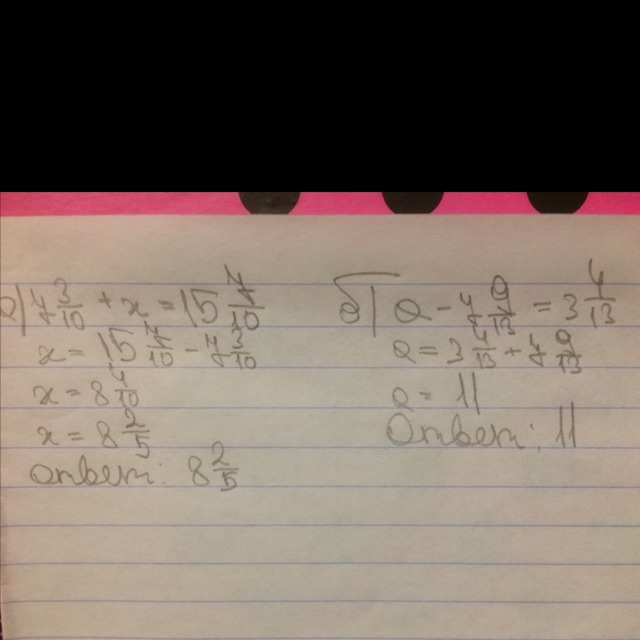 а) 7 3/10 + x = 15 7/10
x = 15 7/10 - 7 3/10
x = 8 4/10
x = 8 2/5
Ответ: 8 2/5
б) a - 7 9/13 = 3 4/13
a = 3 4/13 + 7 9/13
a = 11
Ответ: 11